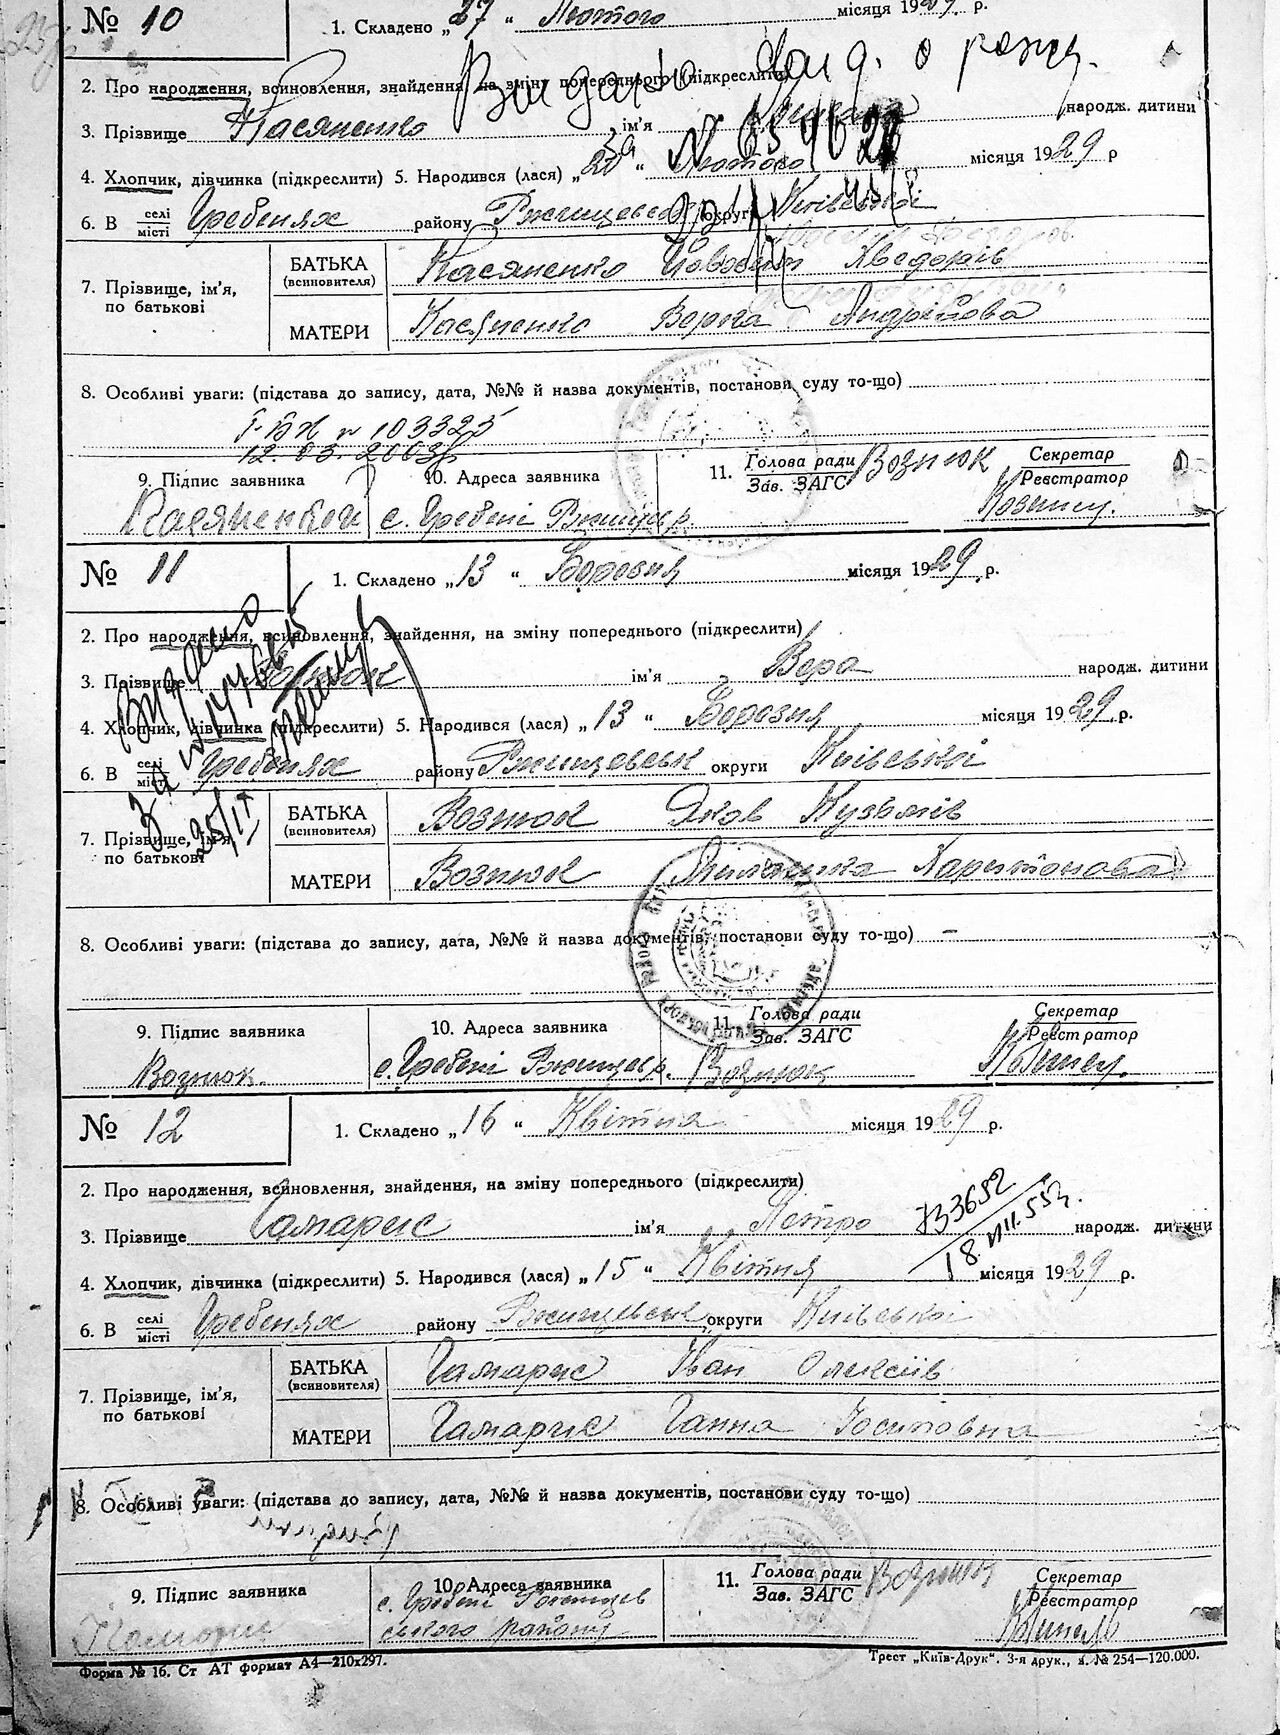 № 10
1. Складено „27“ Лютого місяця 1929 р.
2. Про народження, всиновлення, знайдення, на зміну попереднього (підкреслити)
Видано
3. Прізвище Касяненко ім'я народж. дитини
4. Хлопчик, дівчинка (підкреслити) 5. Народився (лася) „20“ Лютого місяця 1929 р
6. В селі місті Гребенях району Ржищевськ округи Київської
7. Прізвище, ім'я, по батькові
БАТЬКА (всиновителя) Касяненко Хведорів
МАТЕРИ Касяненко Андрійова
8. Особливі уваги: (підстава до запису, дата, №№ й назва документів, постанови суду то-що)
I-БК № 103325
12.03.2003р
9. Підпис заявника
10. Адреса заявника
11. Голова ради Зав. ЗАГС Вознюк
Секретар Реєстратор
с. Гребені Ржищів р.
№ 11
1. Складено „13“ Березня місяця 1929 р.
2. Про народження, всиновлення, знайдення, на зміну попереднього (підкреслити)
3. Прізвище Вознюк ім'я Вера народж. дитини
4. Хлопчик, дівчинка (підкреслити) 5. Народився (лася) „13“ Березня місяця 1929 р.
6. В селі місті Гребенях району Ржищевськ округи Київської
Видано
7. Прізвище, ім'я, по батькові
БАТЬКА (всиновителя) Вознюк Яков Кузьмів
МАТЕРИ Вознюк Харитонова
8. Особливі уваги: (підстава до запису, дата, №№ й назва документів, постанови суду то-що) —
9. Підпис заявника
10. Адреса заявника
11. Голова ради Зав. ЗАГС
Секретар Реєстратор
Вознюк
с. Гребені Ржищев р.
Вознюк
№ 12
1. Складено „16“ Квітня місяця 1929 р.
2. Про народження, всиновлення, знайдення, на зміну попереднього (підкреслити)
3. Прізвище Гамарис ім'я Петро народж. дитини
733652
18.VIII.55р.
4. Хлопчик, дівчинка (підкреслити) 5. Народився (лася) „15“ Квітня місяця 1929 р.
6. В селі місті Гребенях району Ржищевськ округи Київської
7. Прізвище, ім'я, по батькові
БАТЬКА (всиновителя) Гамарис Іван Олексіїв
МАТЕРИ Гамарис Ганна Йосиповна
8. Особливі уваги: (підстава до запису, дата, №№ й назва документів, постанови суду то-що)
9. Підпис заявника
10. Адреса заявника
11. Голова ради Зав. ЗАГС Вознюк
Секретар Реєстратор
с. Гребені Ржищев
ського району
Форма № 16. Ст АТ формат А4—210х297.
Трест „Київ-Друк“. 3-я друк., з. № 254—120.000.